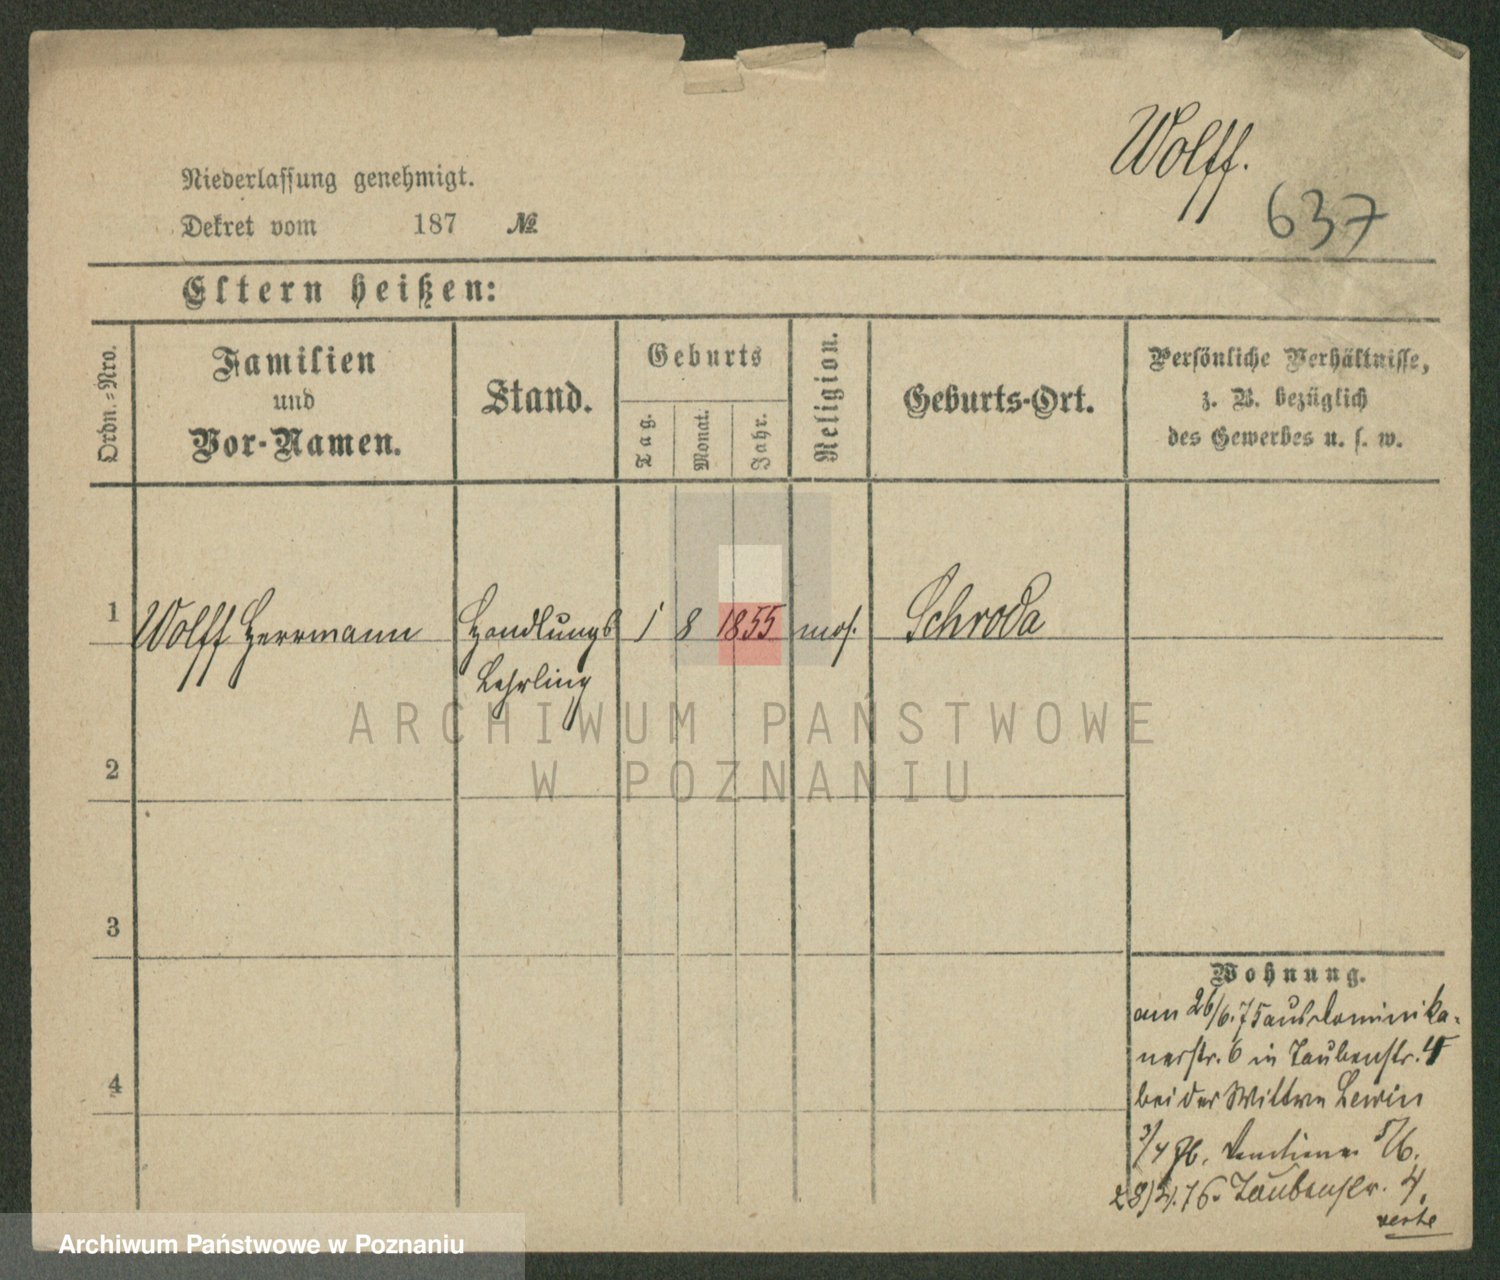 Wolff.
637
Niederlassung genehmigt.
Dekret vom 187 №
Eltern heißen:
Ordn.-Nro.
Familien
und
Vor-Namen.
Stand.
Geburts
Tag.
Monat.
Jahr.
Religion.
Geburts-Ort.
Persönliche Verhältnisse,
z. B. bezüglich
des Gewerbes u. s. w.
1 Wolff Herrmann Handlungs 1 8 1855 mos. Schroda
Lehrling
ARCHIWUM PAŃSTWOWE
W POZNANIU
2
3
4
Wohnung.
am 26/6.75 aus Dominika-
nerstr. 6 in Taubenstr. 4
bei der Wittwe Lewin
3/4 76.
28/4.76. Taubenstr. 4.
verte
Archiwum Państwowe w Poznaniu